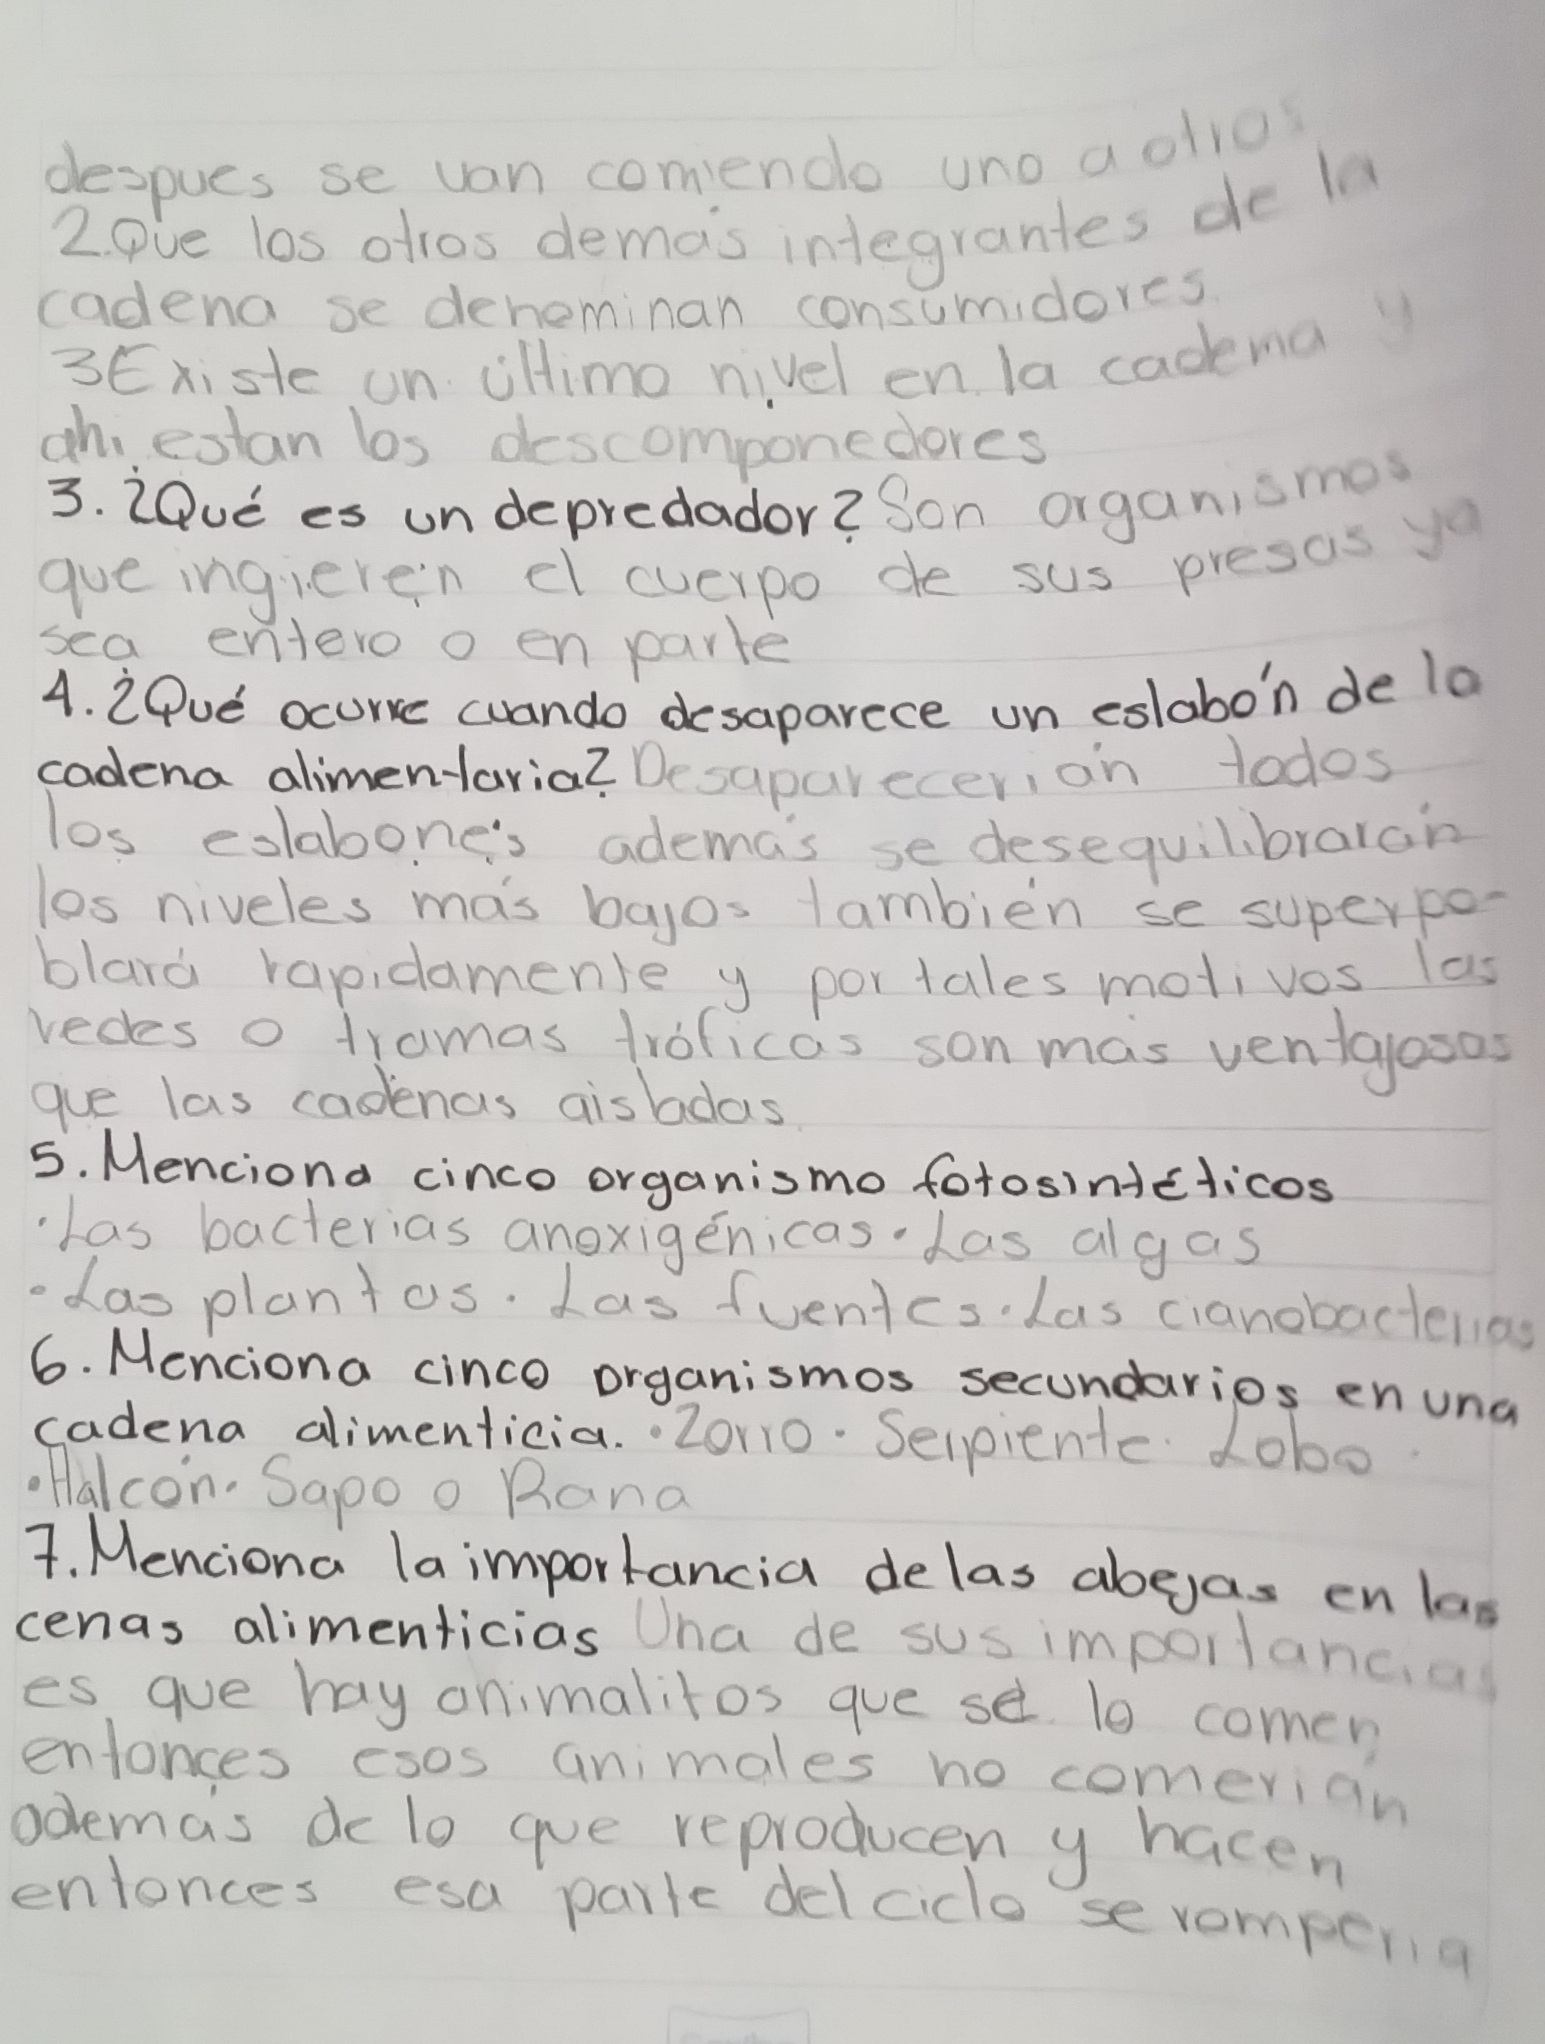 despues se van comiendo uno a otros
2.Que los otros demás integrantes de la
cadena se denominan consumidores.
3Existe un último nivel en la cadena y
ahi estan los descomponedores
3. ¿Qué es un depredador? Son organismos
que ingieren el cuerpo de sus presas ya
sea entero o en parte
4. ¿Qué ocurre cuando desaparece un eslabón de la
cadena alimentaria? Desaparecerian todos
los eslabones además se desequilibrarán
los niveles más bajos también se superpo-
blará rapidamente y por tales motivos las
redes o tramas tróficas son más ventajosas
que las cadenas aisladas.
5. Menciona cinco organismo fotosintéticos
·Las bacterias anoxigénicas·Las algas
·Las plantas·Las fuentes·Las cianobacterias
6. Menciona cinco organismos secundarios en una
cadena alimenticia. ·Zorro·Serpiente·Lobo·
·Halcón·Sapo o Rana
7. Menciona la importancia de las abejas en las
cenas alimenticias Una de sus importancias
es que hay animalitos que se lo comen
entonces esos animales no comerian
además de lo que reproducen y hacen
entonces esa parte del ciclo se romperia